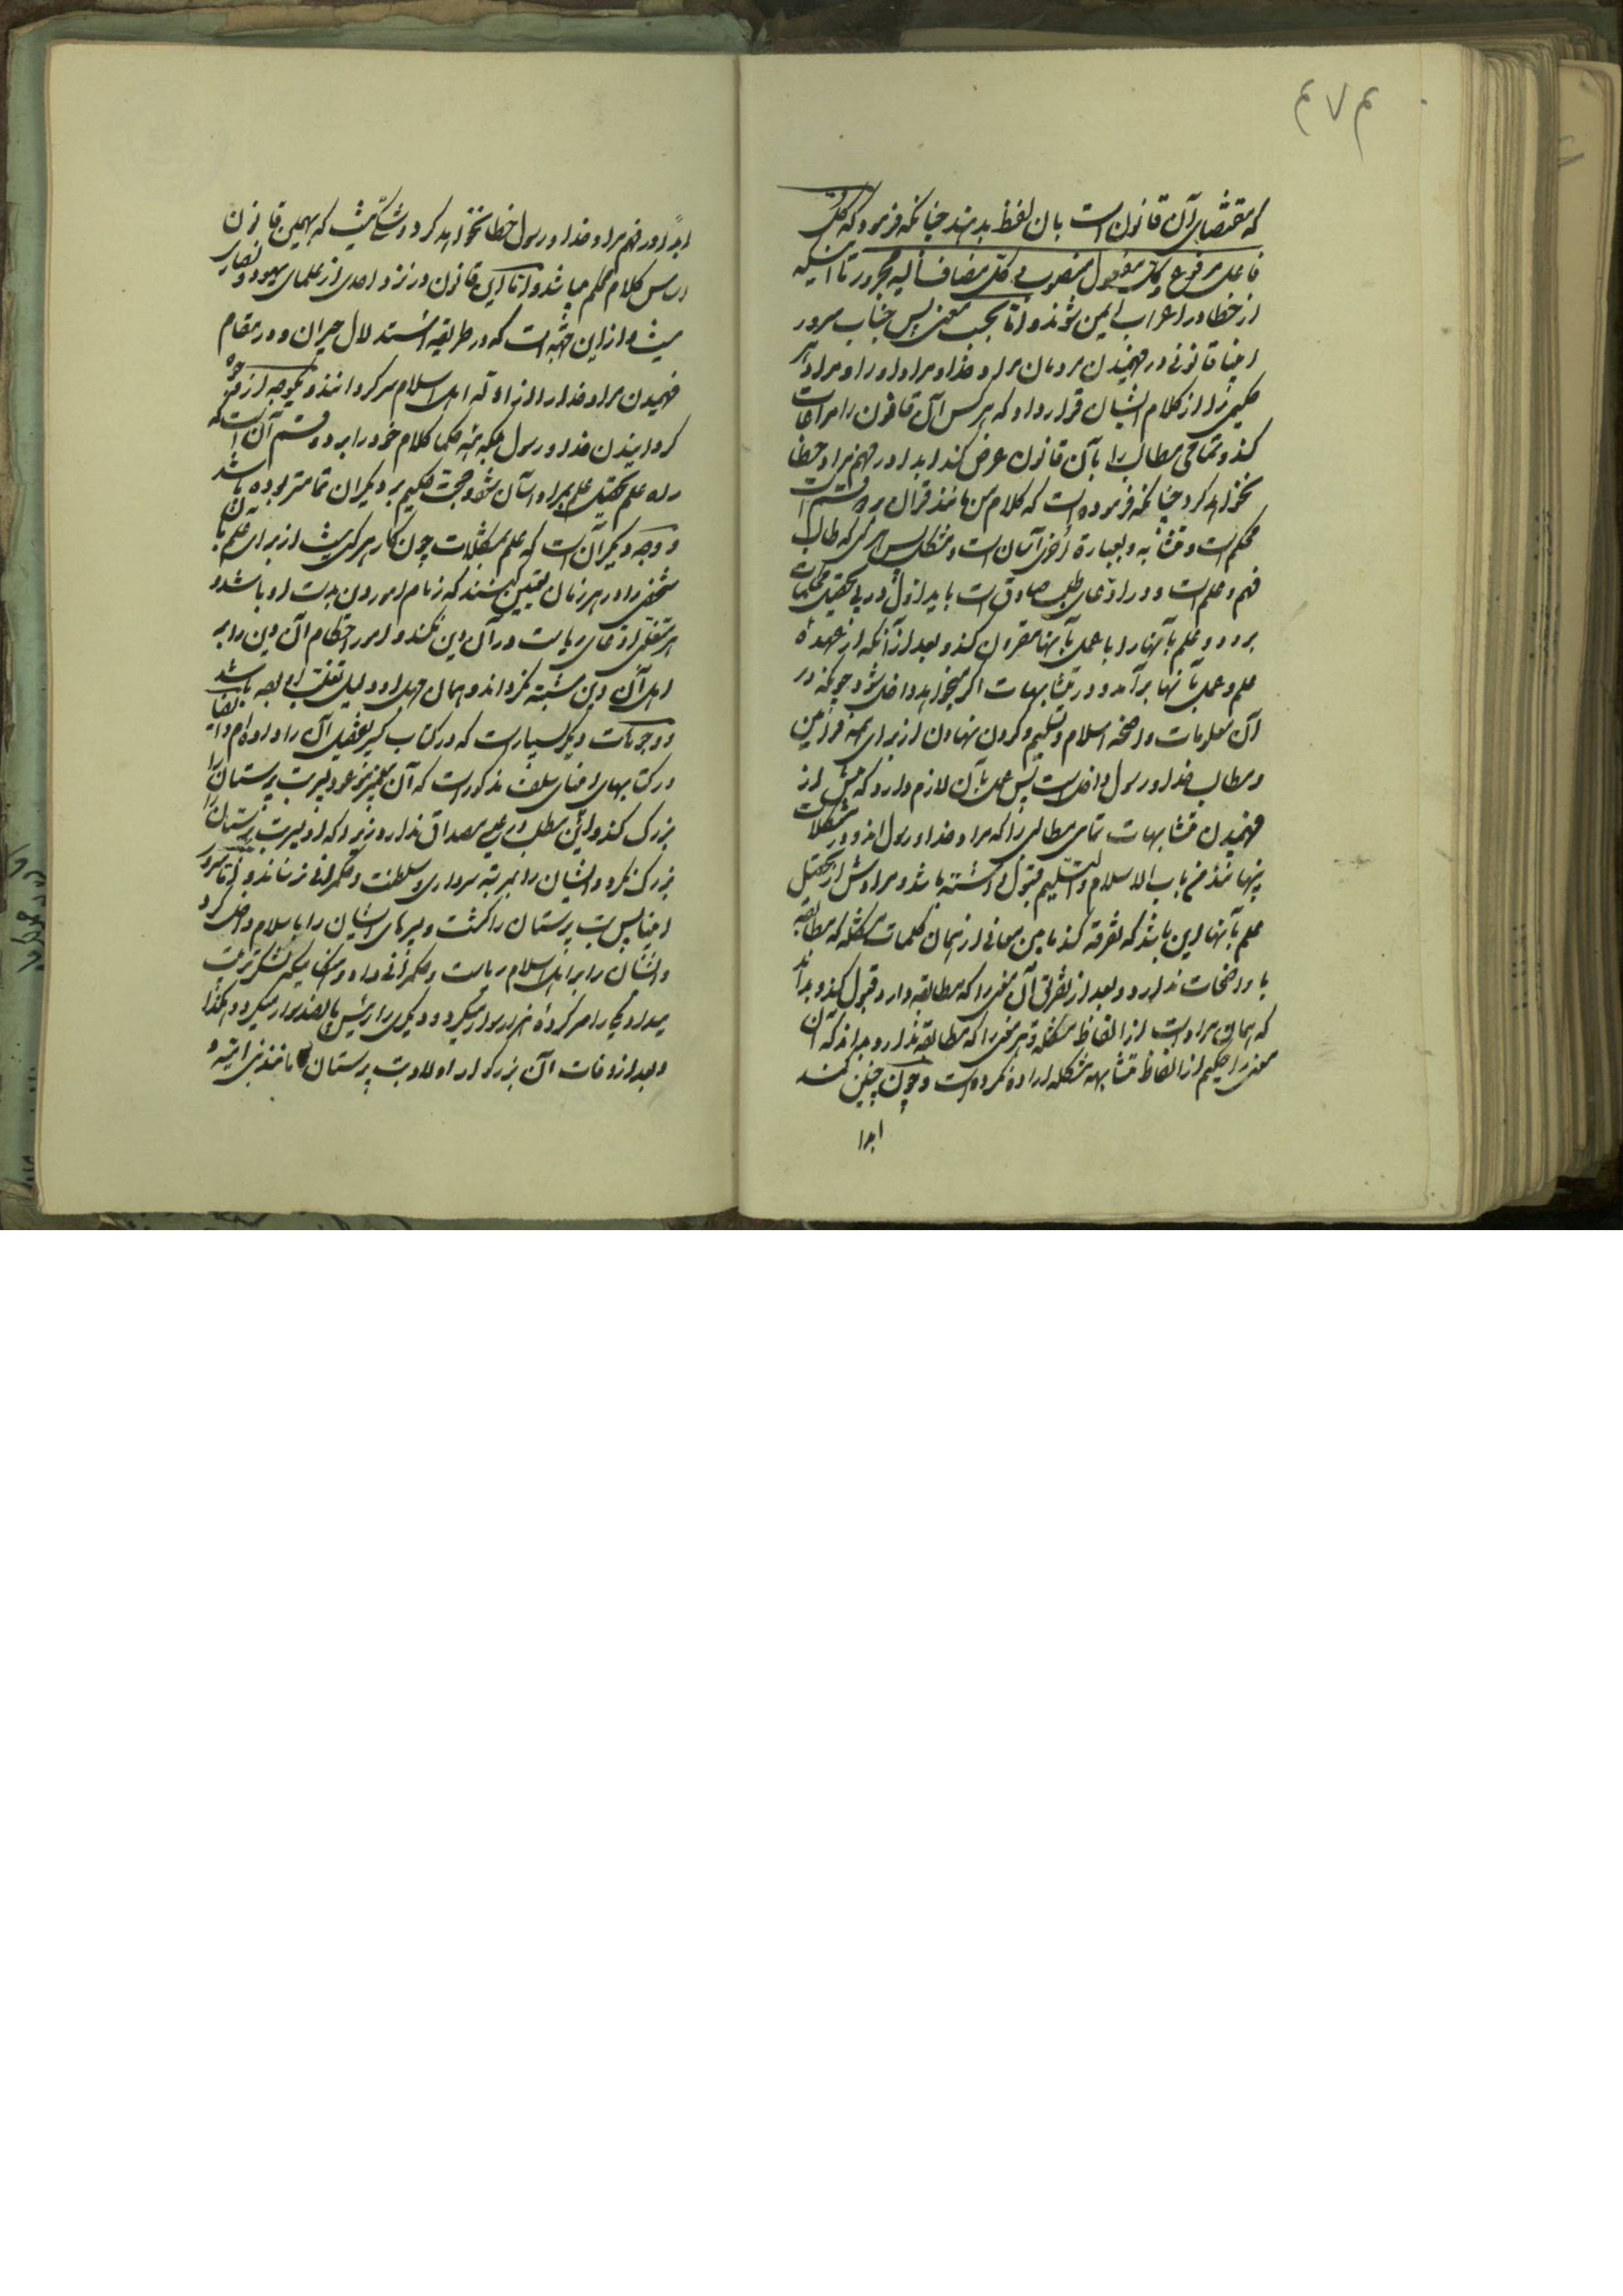 که مقتضای آن قانون است بان لفظ بدهند چنانکه فرمود که کل
فاعل مرفوع وکل مفعول منصوب وکل مضاف الیه مجرور تا اینکه
از خطا در اعراب ایمن شوند واما بحسب معنی پس جناب سرور
اوصیا قانونی در فهمیدن مردمان مراد خدا و مراد او را و مراد هر
حکیمی را از کلام ایشان قرار داد که هر کس آن قانون را مراعات
کند و تمامی مطالب را بآن قانون عرض کند ابدا در فهم مراد خطا
نخواهد کرد چنانکه فرموده است که کلام من مانند قرآن بر دو قسم است
محکم است و متشابه و بعبارة اخری آسان است و مشکل پس هر کس که طالب
فهم و علم است و در ادعای طلب صادق است باید اول در پی تحقیق محکمات
برود و علم بآنها را با عمل بآنها مقرون کند و بعد از آنکه از عهده
علم و عمل بآنها برآمد و در متشابهات اگر میخواهد داخل شود چونکه در
آن معلومات واضحه اسلام و تسلیم و گردن نهادن از برای همه فرامین
و مطالب خدا و رسول داخل است پس عمل بآن لازم دارد که پیش از
فهمیدن متشابهات تمامی مطالبی را که مراد خدا و رسول اند و در مشکلات
پنهانند من باب الاسلام والتسلیم قبول داشته باشد و مرادش از تحصیل
علم بآنها این باشد که تفرقه کند مابین معانی از همان کلمات مشکله که مطابقه
با واضحات ندارد و بعد از تفرقه آن معنی را که مطابقه دارد قبول کند و بداند
که همان مراد است از الفاظ مشکله و هر معنی را که مطابقه ندارد بداند که آن
معنی را حکیم از الفاظ متشابهه مشکله اراده نکرده است و چون چنین کند
ابدا
ابدا در فهم مراد خدا و رسول خطا نخواهد کرد و شکی نیست که همین قانون
اساس کلام محکم میباشد و اما این قانون در نزد احدی از علمای یهود و نصاری
نیست و از این جهة است که در طریقه استدلال حیران و در مقام
فهمیدن مراد خدا از ادله اهل اسلام سرگردانند و یکوجه از وجوه
گردانیدن خدا و رسول بلکه همه حکما کلام خود را بر دو قسم آن است که
راه علم تحصیل علم بمراد آسان شود و حجت حکیم بر دیگران تمامتر بوده باشد
و وجه دیگر آن است که علم بمشکلات چون کار هر کس نیست از برای علم بآن
شخصی را در هر زمان تعیین کنند که زمام امور دین بدست او باشد و
هر متقلبی ادعای ریاست در آن دین نکند و امور احکام آن دین را بر
اهل آن دین مشتبه نگرداند و همان جهل او دلیل تقلب او بوده باشد
و وجوهات دیگر بسیار است که در کتاب کبیر تفصیل آن را داده ام و ایضا
در کتابهای اوصیای سلف مذکور است که آن پیغمبر موعود پسر بت پرستان را
بزرگ کند و این مطلب در عیسی مصداق ندارد زیرا که او پسر بت پرستان را
بزرگ نکرد و ایشان را بمرتبه سرداری و سلطنت و حکمرانی نرساند و اما سرور
اوصیا پس بت پرستان را کشت و پسرهای ایشان را باسلام داخل کرد
و ایشان را بر اهل اسلام ریاست و حکمرانی داد
و بعد از وفات آن بزرگوار اولاد بت پرستان مانند بنی امیه و